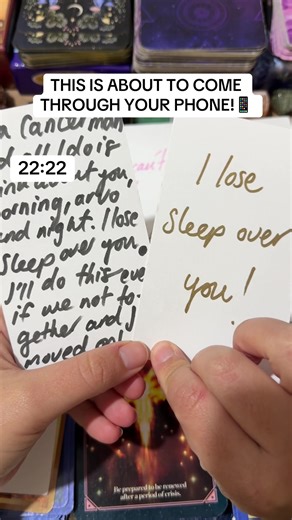 THIS IS ABOUT TO COME
THROUGH YOUR PHONE!
22:22
a Cancer man
and all I do is
about you,
morning, arvo
and night. I lose
Sleep over you.
I'll do this eve
if we not to-
gether and I
moved on!
I lose
Sleep over
you!
Be prepared to be renewed
after a period of crisis.